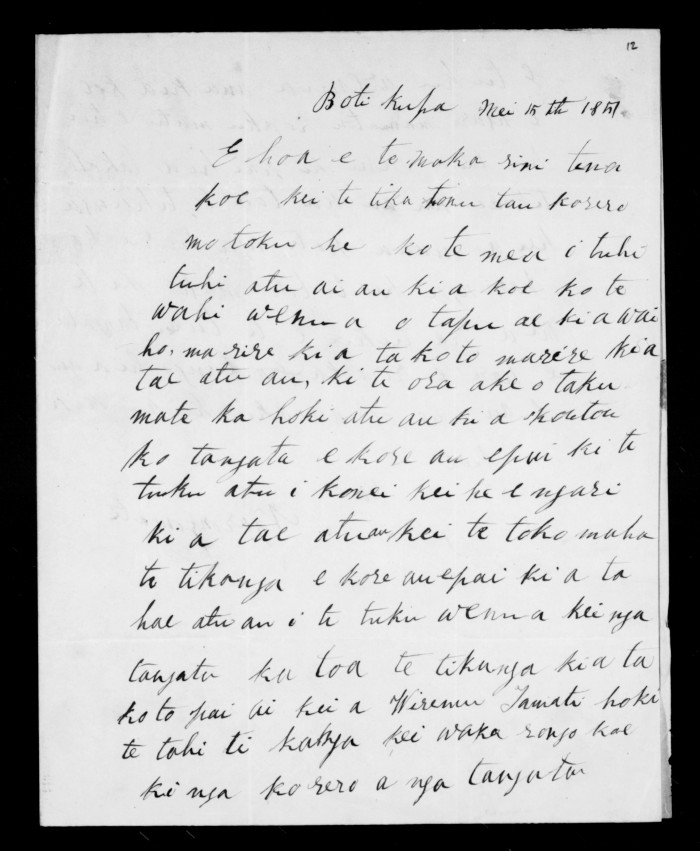 12
Boti kupa Mei 15 th 1851.
E hoa e te maka rini tena
koe kei te tika tonu tau korero
mo toku he ko te mea i tuhi
tuhi atu ai au kia koe ko te
wahi wenua o tapu ae kia wai
ho, marire kia takoto marire kia
tae atu au, ki te ora ake o taku
mate ka hoki atu au kia koutou
ko tangata e kore au epai ki te
tuku atu i konei kei he e ngari
kia tae atu au kei te tokomaha
te tikanga e kore au epai kia ta
hae atu au i te tuku wenua kei nga
tangata ka toa te tikanga kia ta
koto pai ai kei a Wiremu Tamati hoki
te tahi ti kanga kei waka rongo koe
ki nga korero a nga tangata